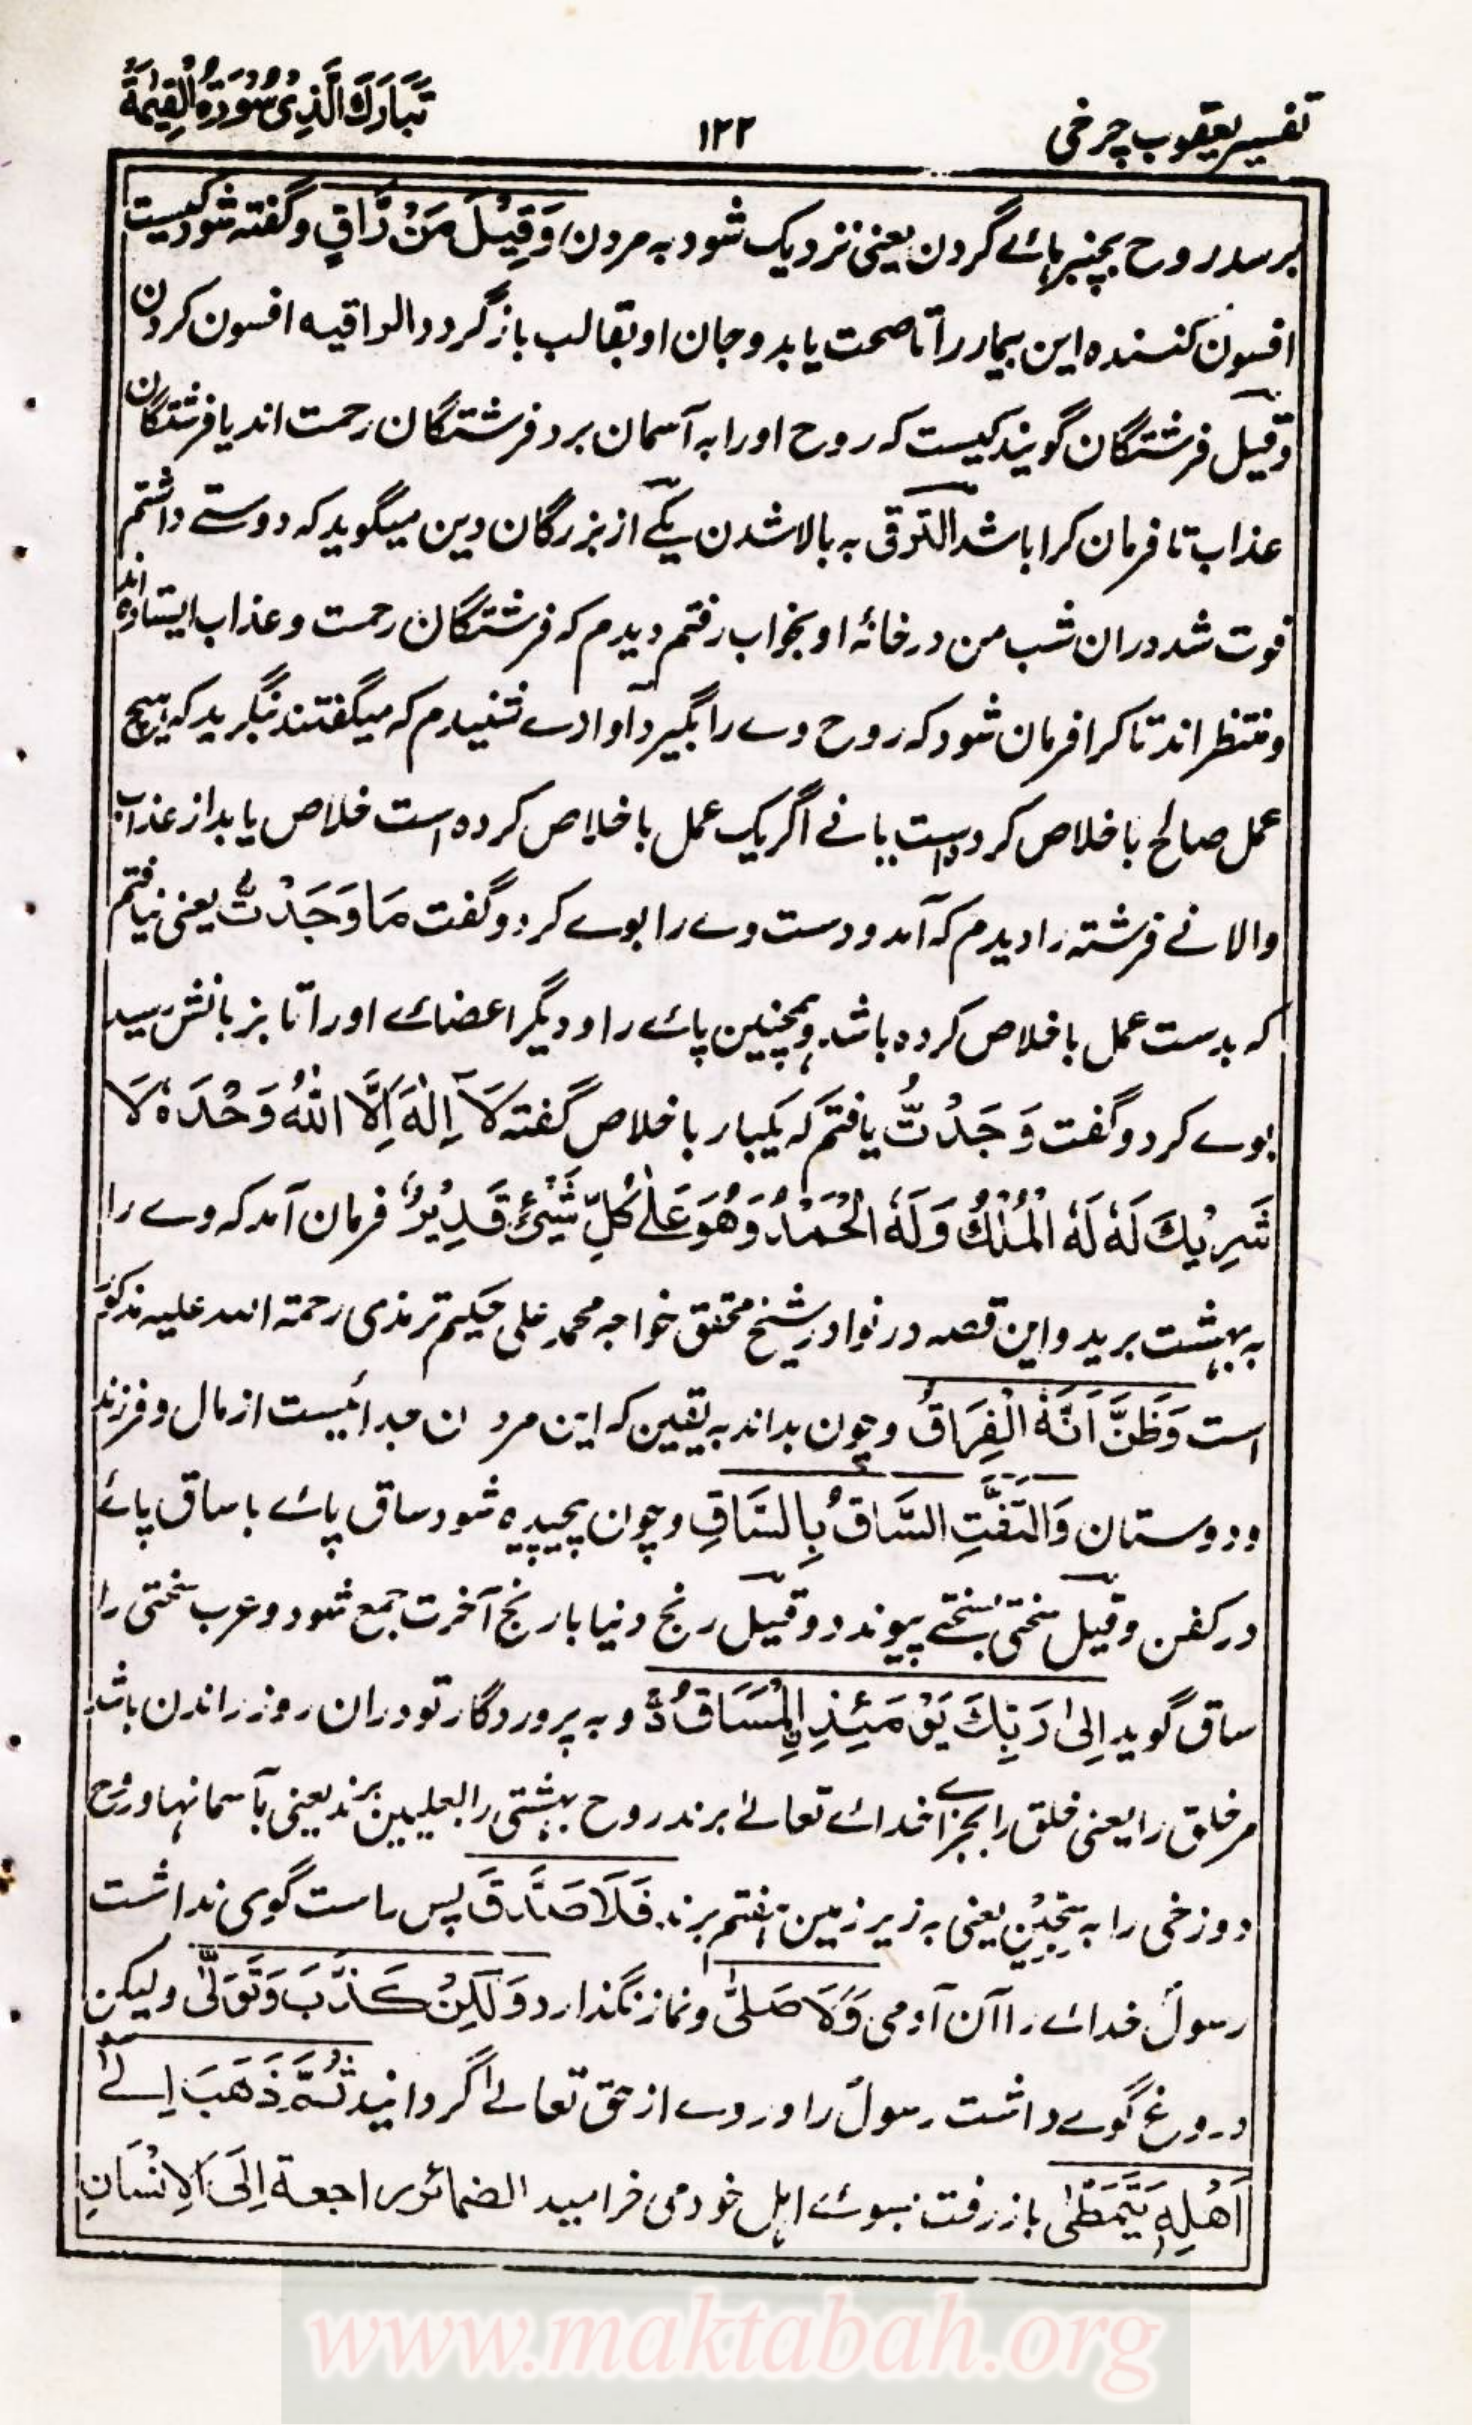 تفسیر یعقوب چرخی ۱۲۲ تَبَارَكَ الَّذِیْ سُوْرَةُ الْقِیٰمَةِ
برسد روح بچنبرہائے گردن یعنی نزدیک شود بہ مردن وَقِیْلَ مَنْ رَّاقٍ وگفتہ شود کیست
افسون کنندہ این بیمار را تا صحت یابد و جان او بقالب باز گردد الراقیہ افسون کردن
وقیل فرشتگان گویند کیست کہ روح او را بہ آسمان برد فرشتگان رحمت اند یا فرشتگان
عذاب تا فرمان کرا باشد الترقی بہ بالا شدن یکے از بزرگان دین میگوید کہ دوستے داشتم
فوت شد دران شب من در خانۂ او بخواب رفتم دیدم کہ فرشتگان رحمت و عذاب ایستادہ اند
و منتظر اند تا کرا فرمان شود کہ روح وے را بگیرد آوازے شنیدم کہ میگفتند بنگرید کہ ہیچ
عمل صالح باخلاص کردہ است یا نے اگر یک عمل باخلاص کردہ است خلاص یابد از عذاب
والا نے فرشتہ را دیدم کہ آمد و دست وے را بوے کرد و گفت مَا وَجَدْتُّ یعنی نیافتم
کہ بدست عمل باخلاص کردہ باشد وہمچنین پائے را و دیگر اعضائے او را تا بزبانش رسید
بوے کرد و گفت وَجَدْتُّ یافتم کہ یکبار باخلاص گفتہ لَآ اِلٰهَ اِلَّا اللّٰهُ وَحْدَهٗ لَا
شَرِیْكَ لَهٗ لَهُ الْمُلْكُ وَلَهُ الْحَمْدُ وَهُوَ عَلٰی كُلِّ شَیْئٍ قَدِیْرٌ فرمان آمد کہ وے را
بہ بہشت برید و این قصہ در نوادر شیخ محقق خواجہ محمد علی حکیم ترمذی رحمتہ اللہ علیہ مذکور
است وَظَنَّ اَنَّهُ الْفِرَاقُ و چون بداند بہ یقین کہ این مردن جدائیست از مال و فرزند
و دوستان وَالْتَفَّتِ السَّاقُ بِالسَّاقِ و چون پیچیدہ شود ساق پائے با ساق پائے
در کفن وقیل سختی بسختے پیوندد وقیل رنج دنیا با رنج آخرت جمع شود و عرب سختی را
ساق گوید اِلٰی رَبِّكَ یَوْمَئِذِ اِلْمَسَاقُ و بہ پروردگار تو دران روز راندن باشد
مر خلق را یعنی خلق را بجزائے خدائے تعالےٰ برند روح بہشتی را بعلیین برند یعنی بآسمانہا و روح
دوزخی را بہ سِجِّیْن یعنی بہ زیر زمین ہفتم برند فَلَا صَدَّقَ پس راست گوی نداشت
رسولؐ خدائے را آن آدمی وَلَا صَلّٰی و نماز نگذارد وَلٰكِنْ كَذَّبَ وَتَوَلّٰی ولیکن
دروغ گوے داشت رسولؐ را و روے از حق تعالےٰ گردانید ثُمَّ ذَهَبَ اِلٰی
اَهْلِهٖ یَتَمَطّٰی باز رفت بسوئے اہل خود می خرامید الضمائر راجعة اِلَی الْاِنْسَانِ
www.maktabah.org